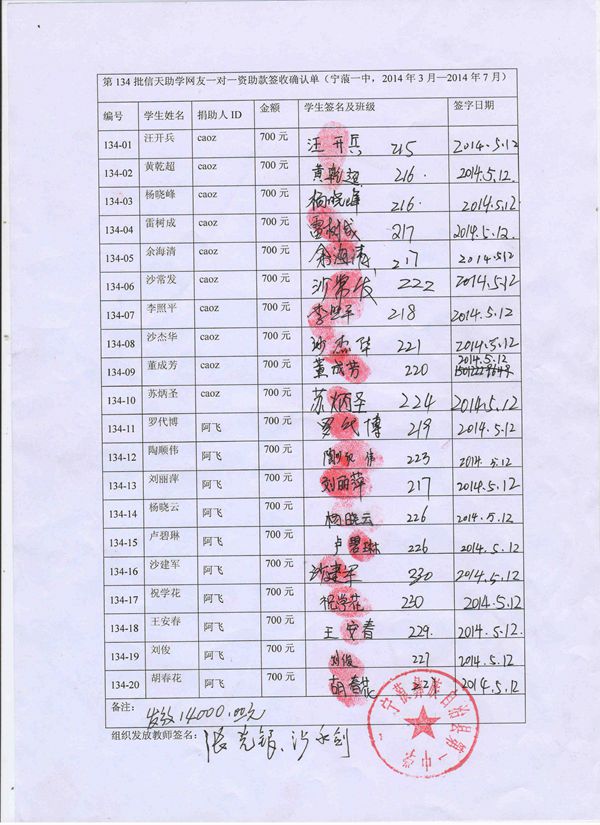 第134批信天助学网友一对一资助款签收确认单（宁蒗一中，2014年3月—2014年7月）
编号 学生姓名 捐助人ID 金额 学生签名及班级 签字日期
134-01 汪开兵 caoz 700元 汪开兵 215 2014.5.12
134-02 黄乾超 caoz 700元 黄乾超 216. 2014.5.12.
134-03 杨晓峰 caoz 700元 杨晓峰 216. 2014.5.12.
134-04 雷树成 caoz 700元 雷树成 217 2014.5.12.
134-05 余海清 caoz 700元 余海清, 217 2014.5.12
134-06 沙常发 caoz 700元 沙常发 222 2014.5.12
134-07 李照平 caoz 700元 李照平 218 2014.5.12.
134-08 沙杰华 caoz 700元 沙杰华 221 2014.5.12.
134-09 董成芳 caoz 700元 董成芳 220 2014.5.12
134-10 苏炳圣 caoz 700元 苏炳圣 224 2014.5.12
134-11 罗代博 阿飞 700元 罗代博 219 2014.5.12
134-12 陶顺伟 阿飞 700元 陶顺伟 223 2014.5.12
134-13 刘丽萍 阿飞 700元 刘丽萍 217 2014.5.12
134-14 杨晓云 阿飞 700元 杨晓云 226 2014.5.12
134-15 卢碧琳 阿飞 700元 卢碧琳 226 2014.5.12
134-16 沙建军 阿飞 700元 沙建军 230 2014.5.12
134-17 祝学花 阿飞 700元 祝学花 230 2014.5.12
134-18 王安春 阿飞 700元 王安春 229. 2014.5.12.
134-19 刘俊 阿飞 700元 刘俊 227 2014.5.12.
134-20 胡春花 阿飞 700元 胡春花 227 2014.5.12
备注： 发放14000.00元
组织发放教师签名： 张克银、沙永剑
宁蒗彝族自治县第一中学